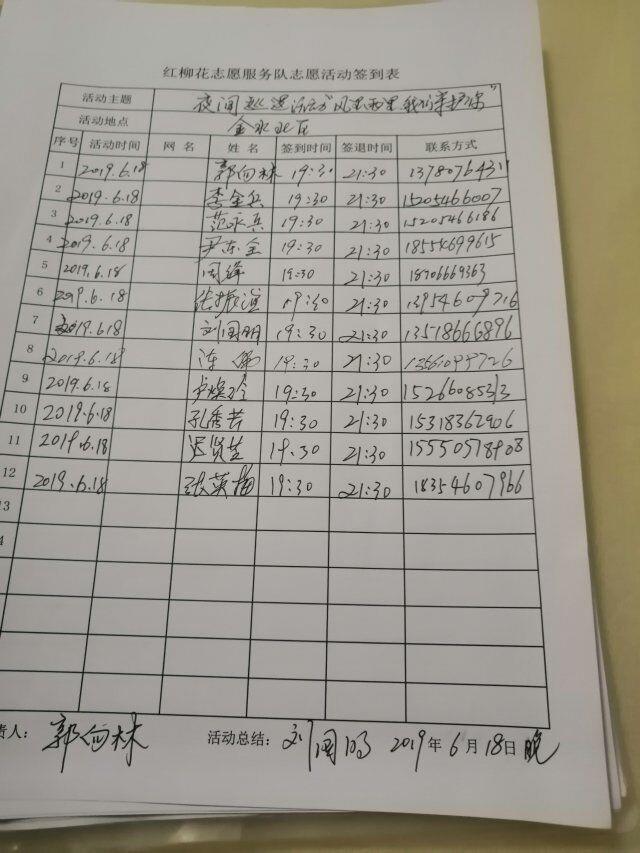 红柳花志愿服务队志愿活动签到表
活动主题 夜间巡逻活动"风里雨里我们守护你"
活动地点 金水北区
序号 活动时间 网名 姓名 签到时间 签退时间 联系方式
1 2019.6.18 郭向林 19:30 21:30
2 2019.6.18 李金兵 19:30 21:30 15205466007
3 2019.6.18 范永兵 19:30 21:30 15205466186
4 2019.6.18 尹东全 19:30 21:30 18554699615
5 2019.6.18 周峰 19:30 21:30 18706669363
6 2019.6.18 19:30 21:30 13954609716
7 2019.6.18 刘国明 19:30 21:30 13518666896
8 2019.6.18 19:30 21:30
9 2019.6.18 19:30 21:30
10 2019.6.18 孔秀芸 19:30 21:30 15318362906
11 2019.6.18 19:30 21:30 15550578908
12 2019.6.18 张英梅 19:30 21:30 18354607966
13
4
责人: 郭向林 活动总结: 刘国明 2019年6月18日晚